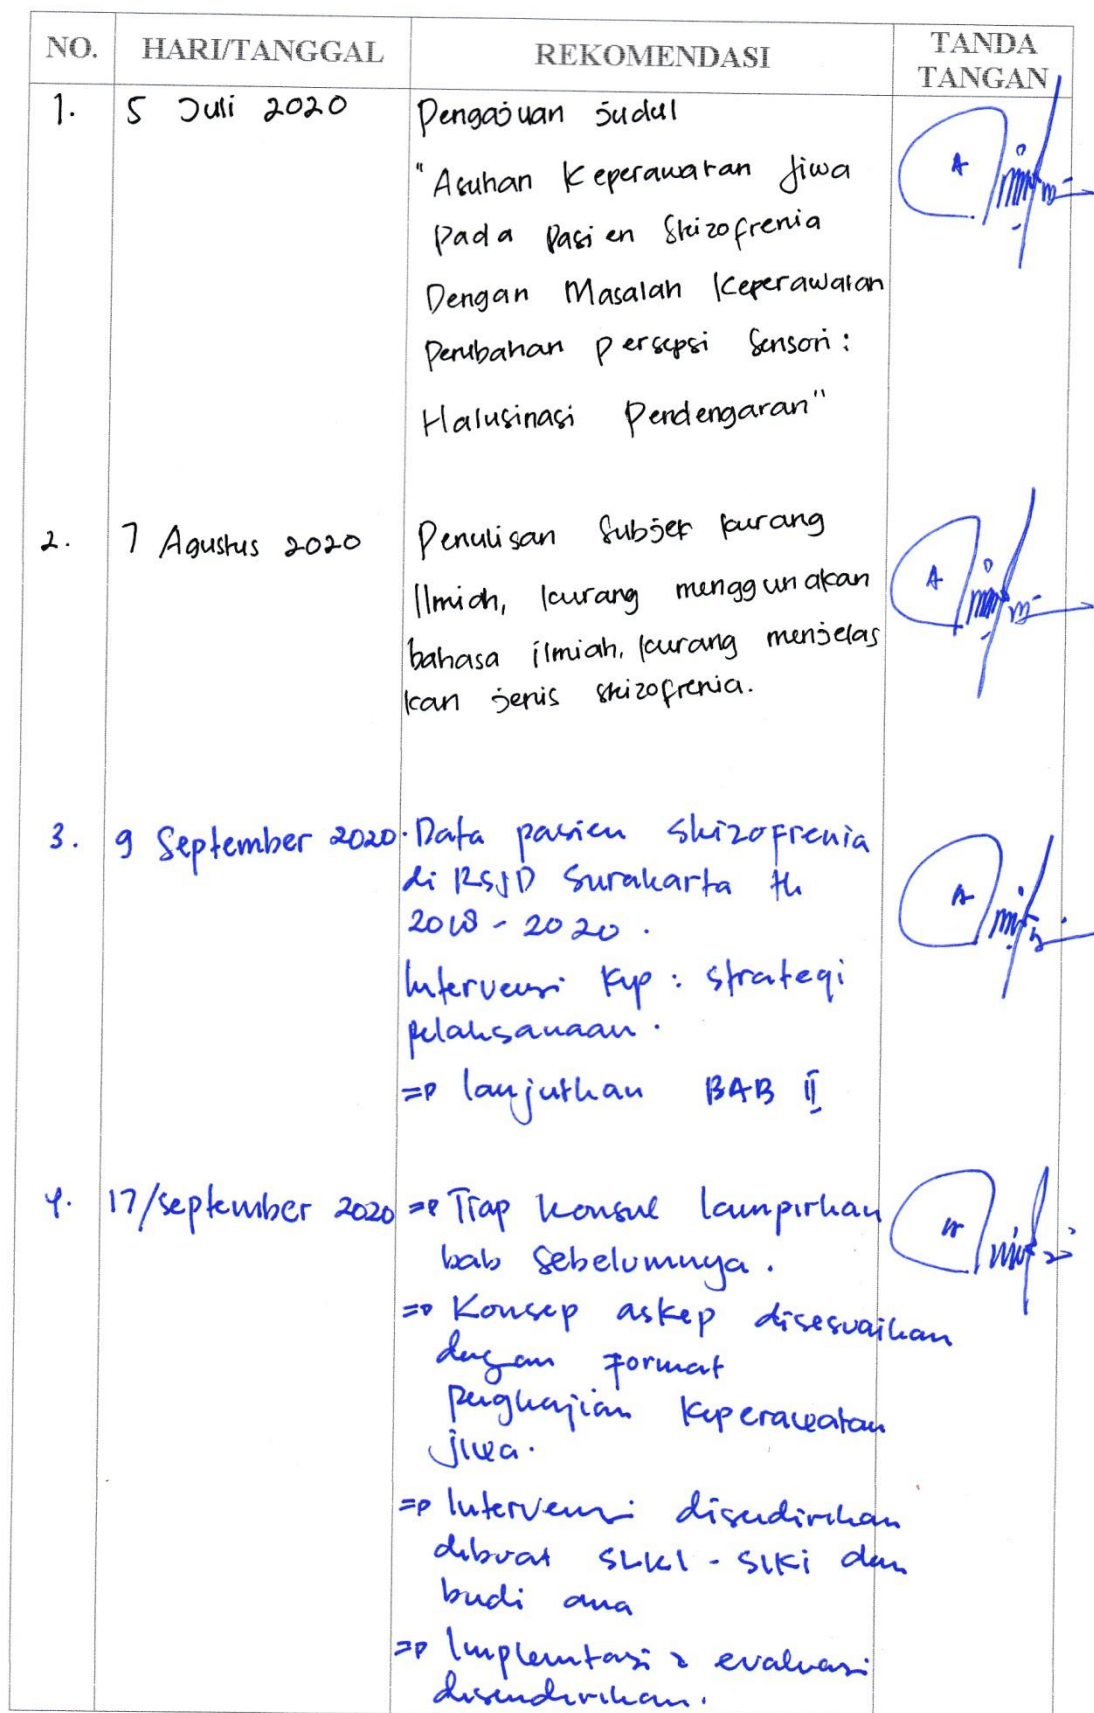 NO. HARI/TANGGAL REKOMENDASI TANDA TANGAN
1. 5 Juli 2020 Pengajuan judul
"Asuhan Keperawatan Jiwa
Pada Pasien Skizofrenia
Dengan Masalah Keperawatan
Perubahan persepsi Sensori :
Halusinasi Pendengaran"
2. 7 Agustus 2020 Penulisan Subjek kurang
Ilmiah, kurang menggunakan
bahasa ilmiah, kurang menjelas
kan jenis skizofrenia.
3. 9 September 2020 . Data pasien skizofrenia
di RSJD Surakarta th
2018 - 2020 .
Intervensi Kep : strategi
pelaksanaan .
=> lanjutkan BAB II
4. 17/september 2020 => Tiap konsul lampirkan
bab sebelumnya .
=> Konsep askep disesuaikan
dengan format
pengkajian keperawatan
jiwa .
=> Intervensi disendirikan
dibuat SLKI - SIKI dan
budi ana
=> Implemtasi & evaluasi
disendirikan .